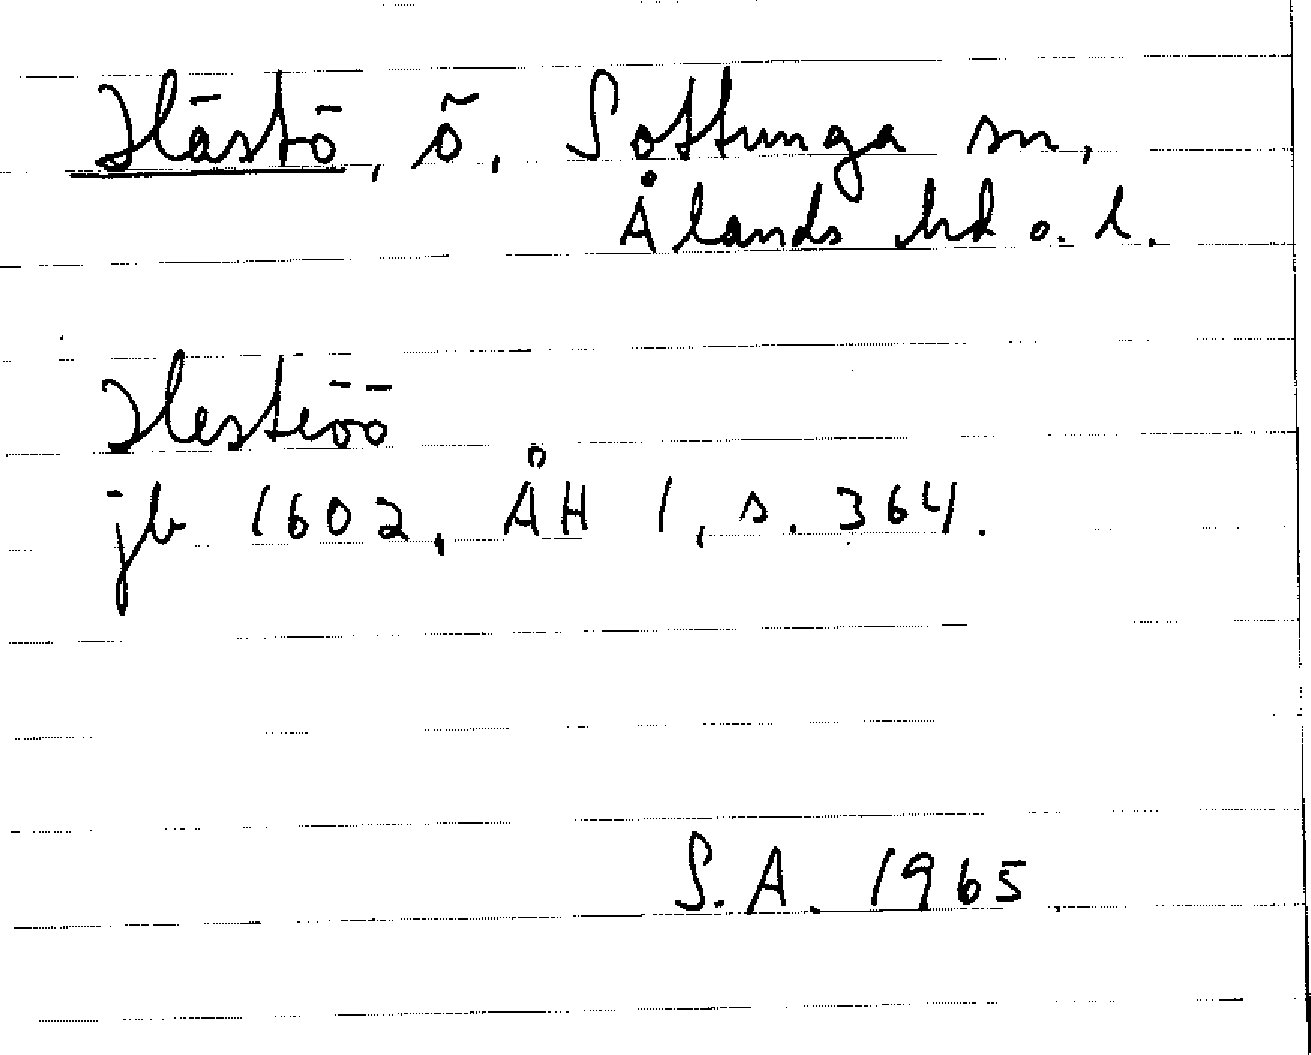 Hästö, ö, Sottunga sn,
Ålands hd o. l.
Hesteöö
jb 1602, ÅH 1, s. 364.
S.A. 1965